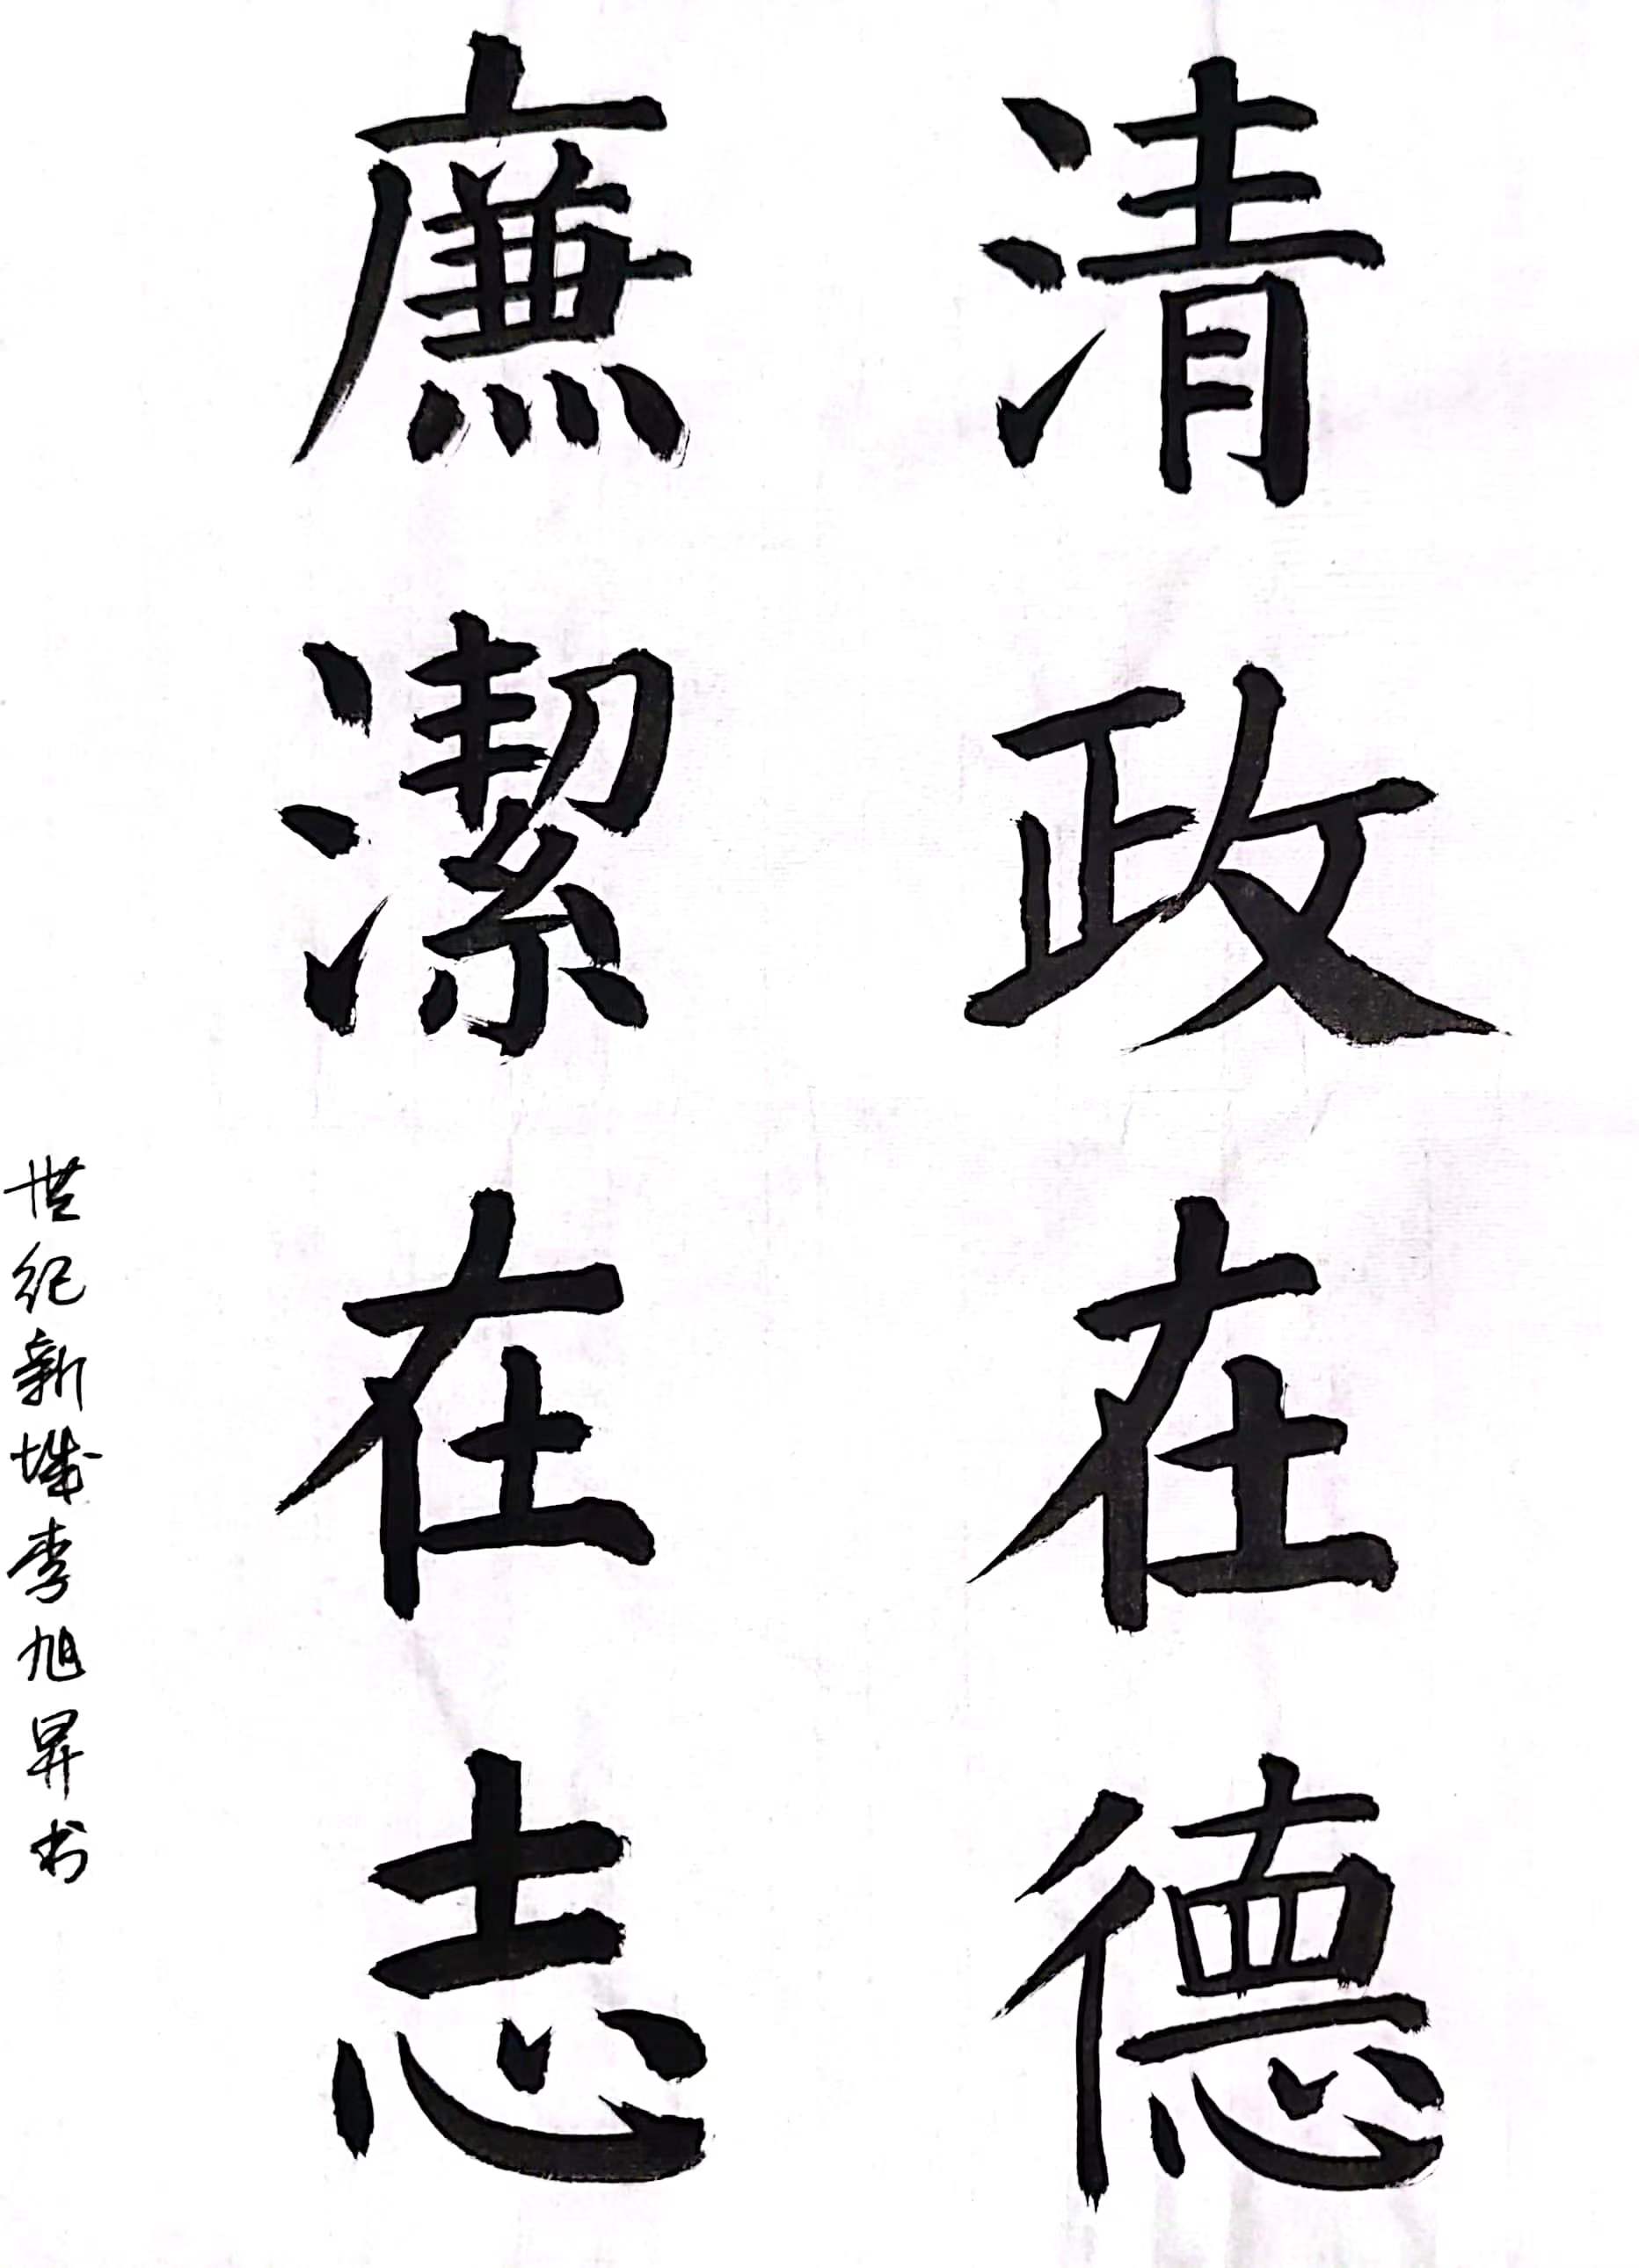 清政在德
廉潔在志
世纪新城李旭昇书